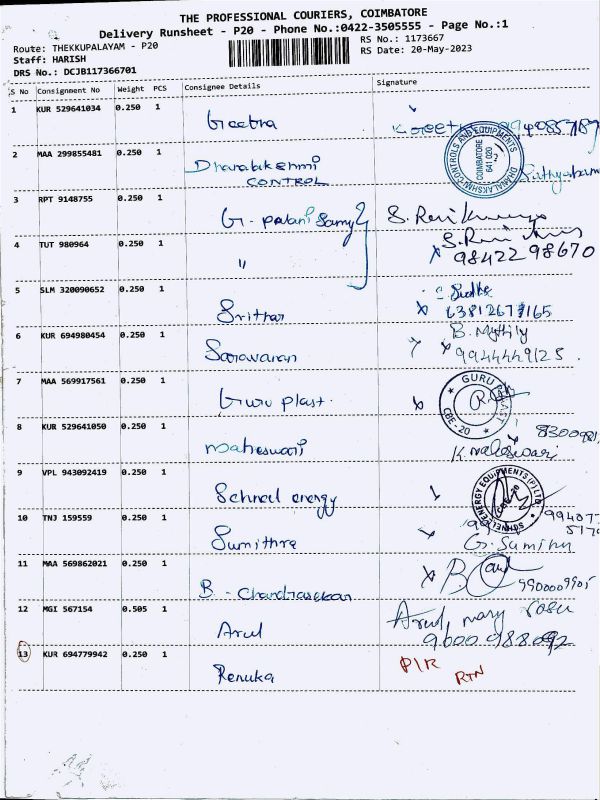 THE PROFESSIONAL COURIERS, COIMBATORE
Delivery Runsheet - P20 - Phone No.:0422-3505555 - Page No.:1
Route: THEKKUPALAYAM - P20
RS No.: 1173667
Staff: HARISH
RS Date: 20-May-2023
DRS No.: DCJB117366701
S No Consignment No Weight PCS Consignee Details Signature
1 KUR 529641034 0.250 1 Geetha
2 MAA 299855481 0.250 1 Dhanalakshmi
CONTROL
DHANALAKSHMI CONTROLS AND EQUIPMENTS
COIMBATORE
641 020
3 RPT 9148755 0.250 1 G. palani Samy
4 TUT 980964 0.250 1 "
98422 98670
5 SLM 320090652 0.250 1 Srithar
6 KUR 694980454 0.250 1 Saravanan B. Mythily
9944449125.
7 MAA 569917561 0.250 1 Guru plast.
GURU PLAST
CBE-20
8 KUR 529641050 0.250 1 Maheswari K. maheswari
9 VPL 943092419 0.250 1 Schnell energy
SCHNELL ENERGY EQUIPMENTS (P) LTD
CBE-20
10 TNJ 159559 0.250 1 Sumithra
11 MAA 569862021 0.250 1 B. Chandrasekar
12 MGI 567154 0.505 1 Arul Arul, mary
13 KUR 694779942 0.250 1 Renuka P/R
RTN